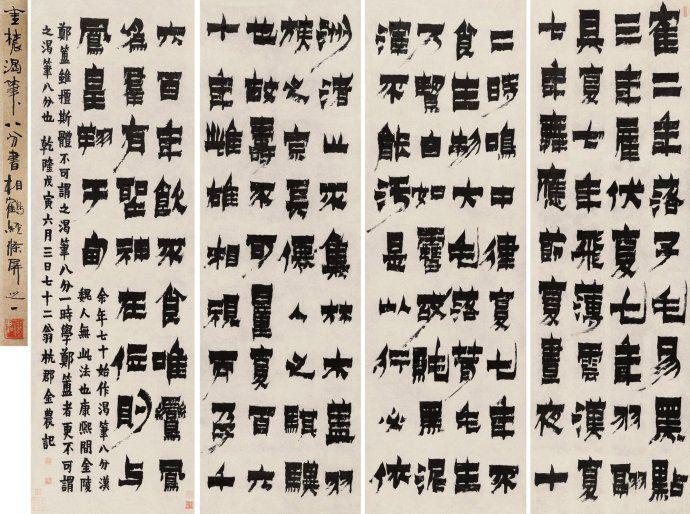 雀二年落子毛易黑點
三年產伏復七年羽翮
具復七年飛薄雲漢復
七年舞應節復七年晝夜十
二時鳴中律復七年不
食生物大毛落茸毛生
乃潔白如雪故純黑泥
不能污是以行必依
洲渚止不集林木蓋羽
族之宗長僊人之騏驥
也故壽不可量復百六
十年雌雄相視而孕千
六百年飲不食唯鸞鳳
為群有聖神在位則與
鳳皇翔于甸
余年七十始作渴筆八分漢
魏人無此法也康熙間金陵
鄭簠雖擅斯體不可謂之渴筆八分一時學鄭簠者更不可謂
之渴筆八分也 乾隆戊寅六月三日七十二翁杭郡金農記
金農渴筆八分書相鶴經條屏之一